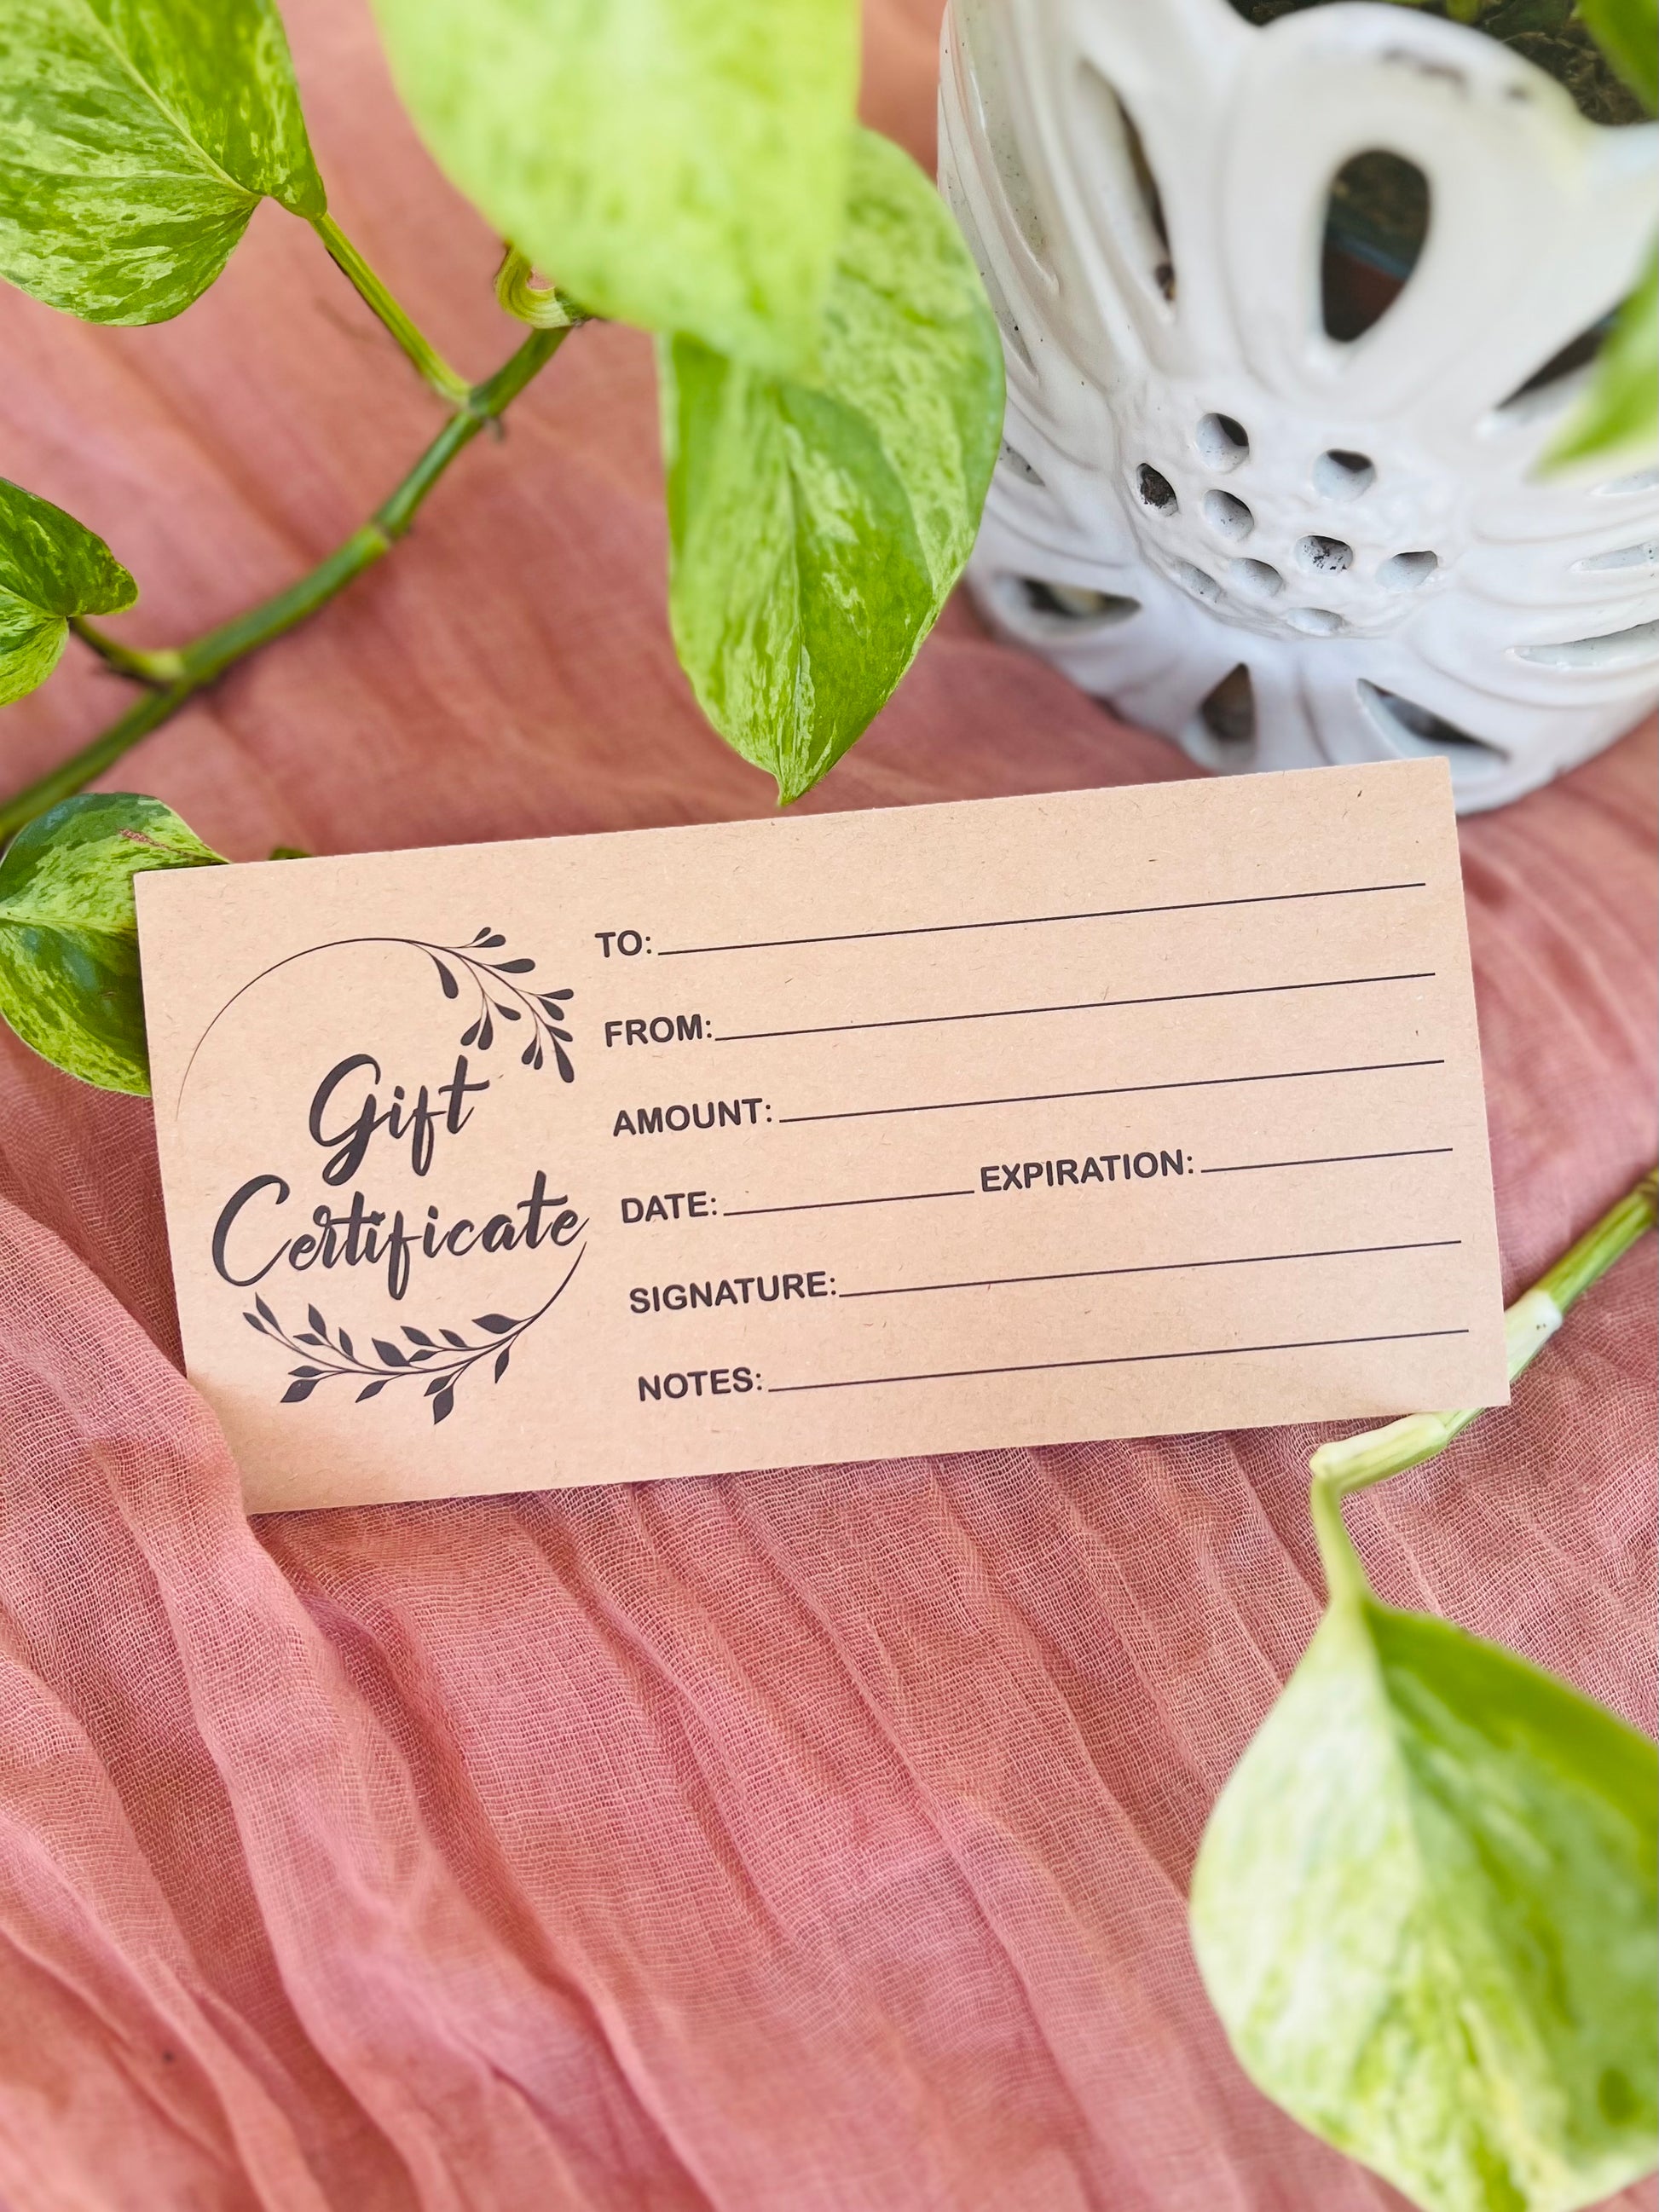 Gift
Certificate
TO:
FROM:
AMOUNT:
DATE: EXPIRATION:
SIGNATURE:
NOTES: